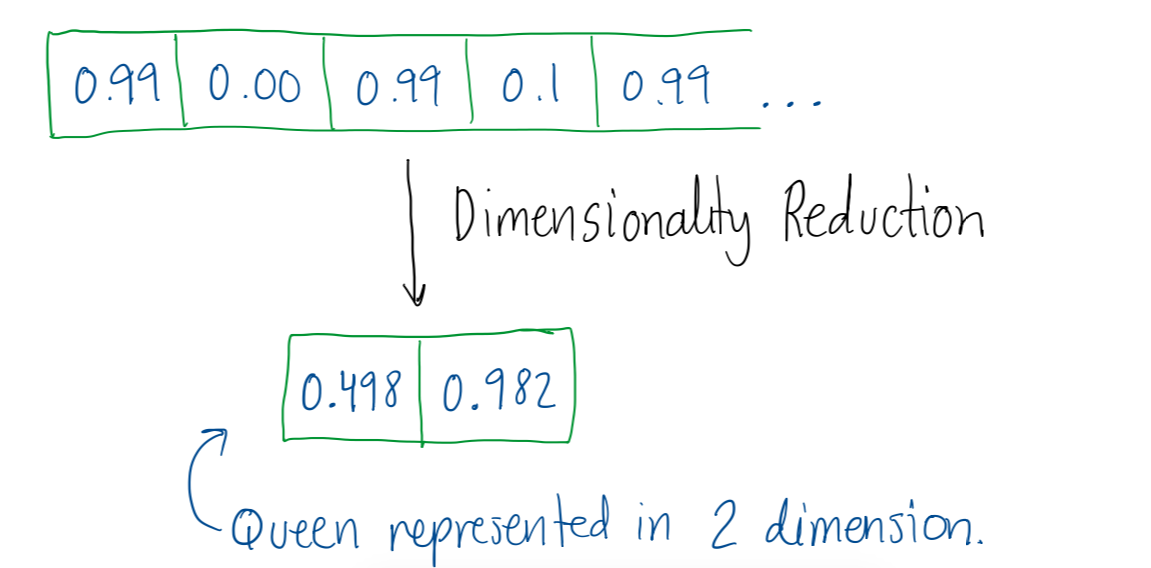 0.99 0.00 0.99 0.1 0.99 ...
Dimensionality Reduction
0.498 0.982
Queen represented in 2 dimension.